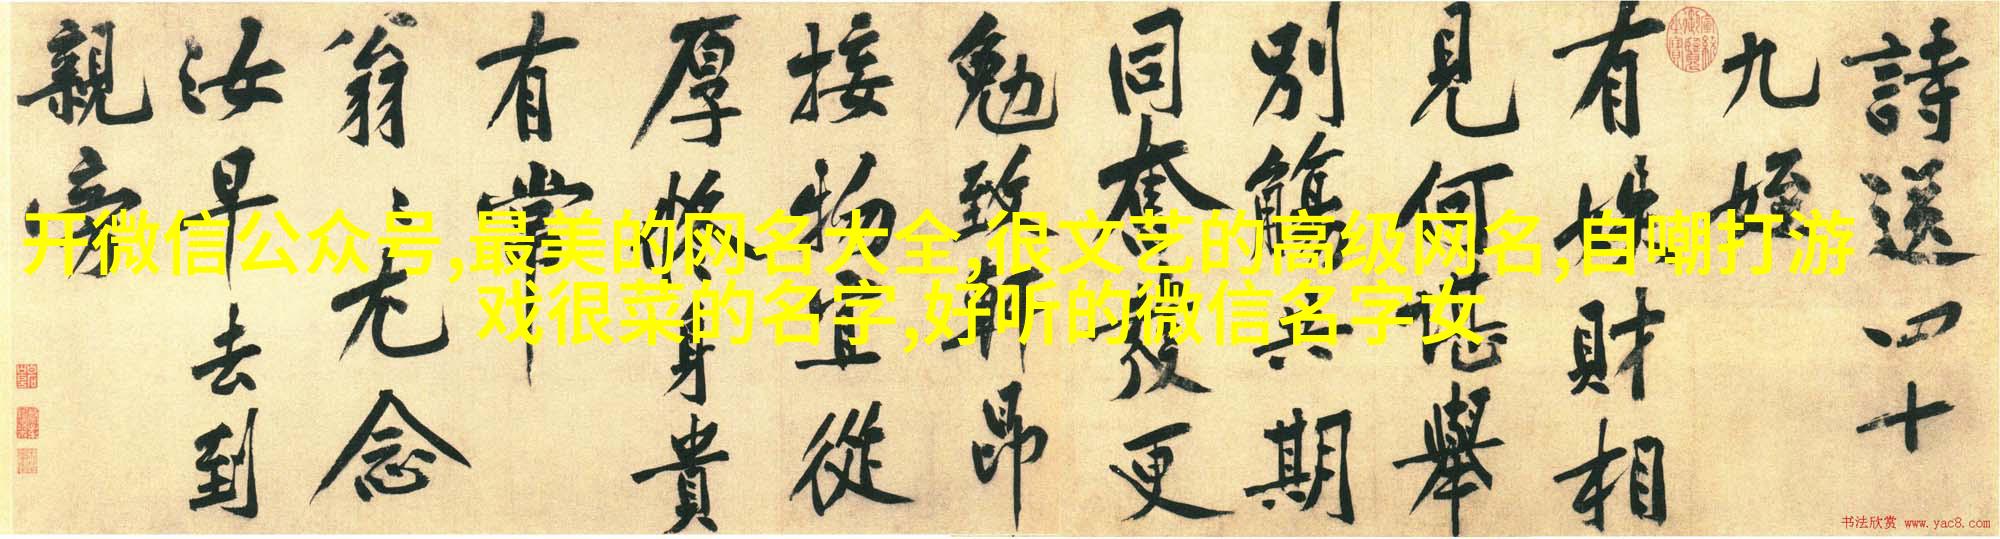 詩送四十
九姪
有姪財相
見何堪舉
別觴共期
同奮發更
勉致軒昂
接物宜從
厚將身貴
有常
翁〻尤念
汝早去到
親旁
开微信公众号,最美的网名大全,很文艺的高级网名,自嘲打游
戏很菜的名字,好听的微信名字女
书法欣赏 www.yac8.com